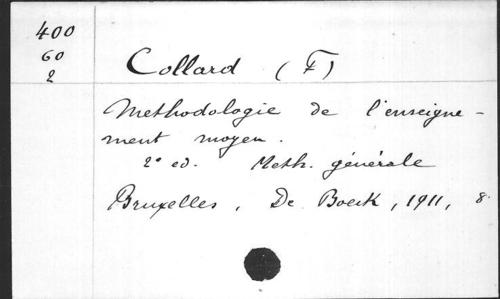 400
60
2
Collard (F)
Methodologie de l'enseigne-
ment moyen.
2e ed. Meth. générale
Bruxelles, De Boeck, 1911, 8.